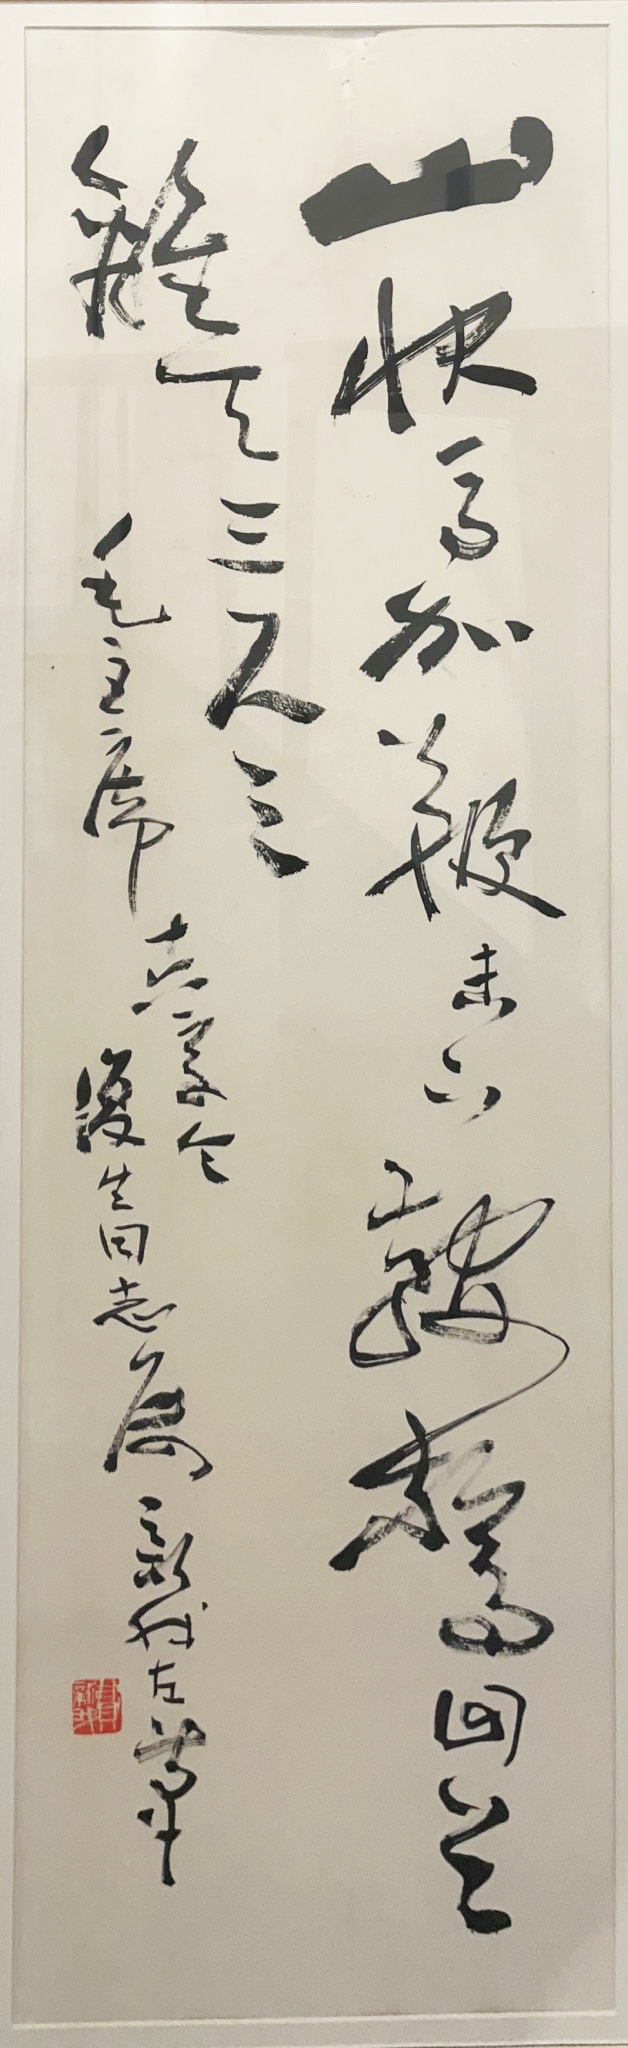 山快马加鞭未下鞍惊回首
離天三尺三
毛主席
十六字令
復生同志属
新我左笔
費新我